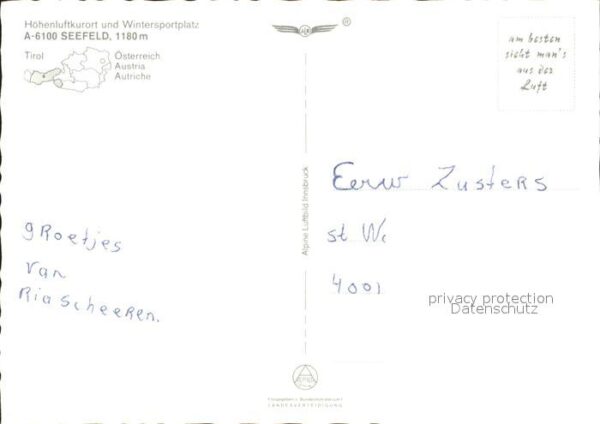 Höhenluftkurort und Wintersportplatz
A-6100 SEEFELD, 1180 m
Tirol
Österreich
Austria
Autriche
®
am besten
sieht man's
aus der
Luft
Alpine Luftbild Innsbruck
Eerw Zusters
st W
4001
groetjes
van
Ria Scheeren.
privacy protection
Datenschutz
LANDESVERTEIDIGUNG